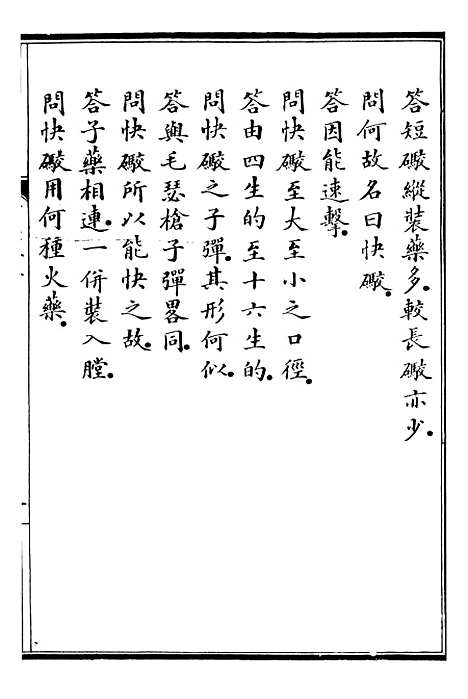 答短礮縱裝藥多較長礮亦少
問何故名曰快礮
答因能速擊
問快礮至大至小之口徑
答由四生的至十六生的
問快礮之子彈其形何似
答與毛瑟槍子彈畧同
問快礮所以能快之故
答子藥相連一併裝入膛
問快礮用何種火藥